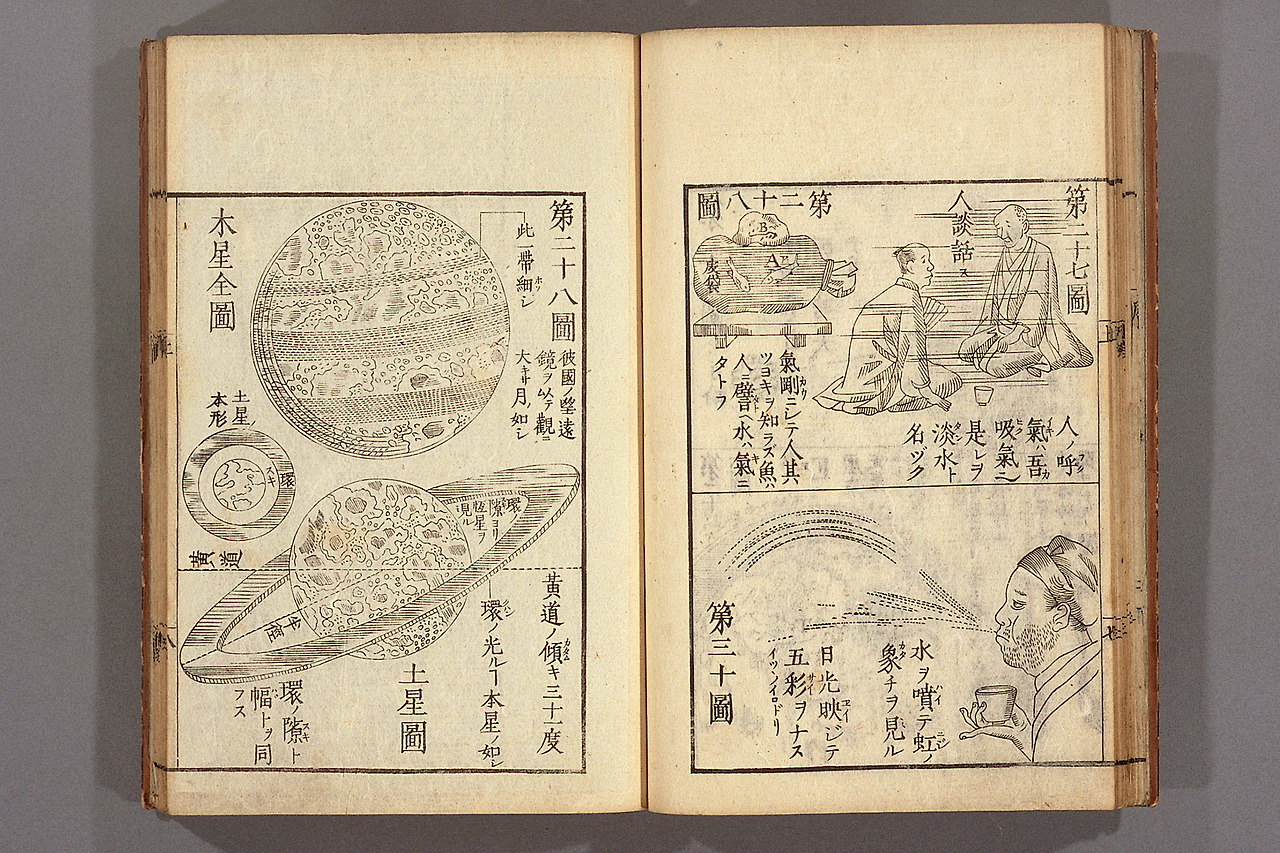 第二十七圖
人談話ス
人ノ呼
氣ハ吾
吸氣
是レヲ
淡水ト
名ヅク
第二十八圖
B
A
皮袋
氣剛ニシテ人其
ツヨキヲ知ラズ魚ハ
人ニ譬ヘ水ハ氣ニ
タトフ
水ヲ噴テ虹ノ
象チヲ見ル
日光映ジテ
五彩ヲナス
イツヽイロドリ
第三十圖
第二十八圖
此一帶細シ
彼國ノ望遠
鏡ヲ以テ觀ニ
大キサ月ノ如シ
木星全圖
土星ノ
本形
環
スキ
環ノ
隙ヨリ
恆星ヲ
見ル
黃道
黃道ノ傾キ三十一度
環ノ光ルヿ本星ノ如シ
土星圖
環ノ隙ト
幅トヲ同
フス